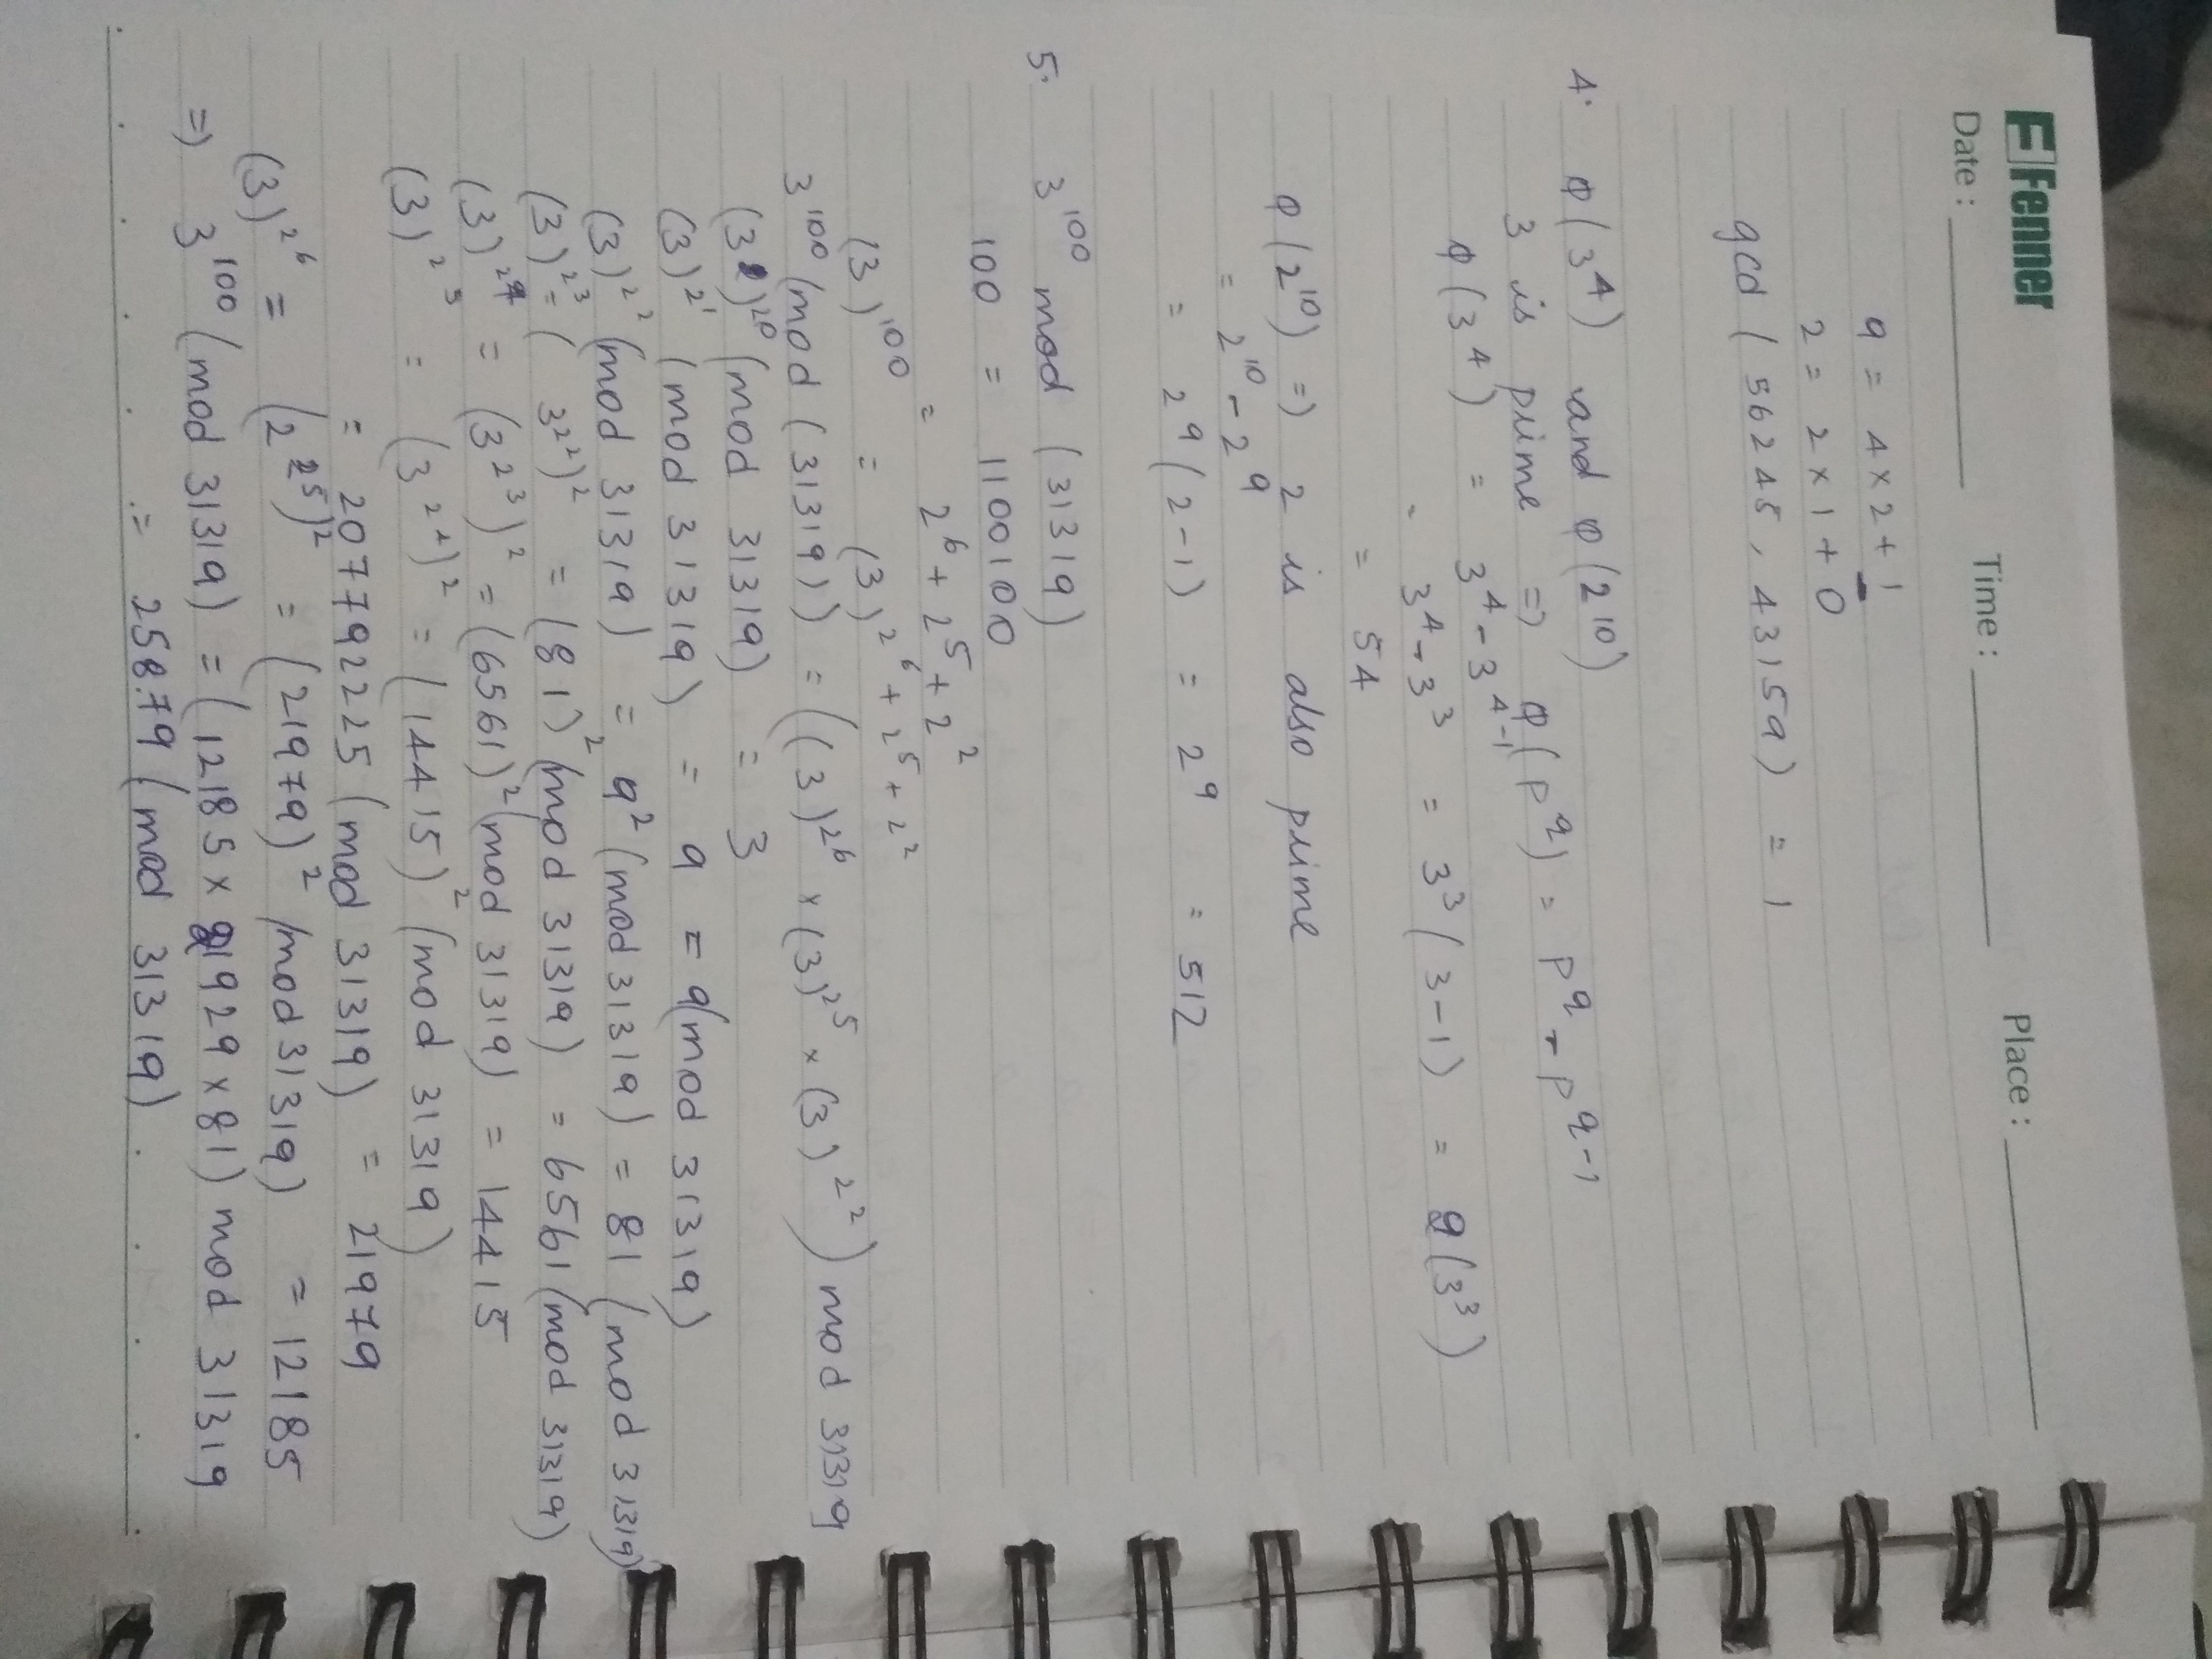 Fenner
Date : Time : Place :
9 = 4 × 2 + 1
2 = 2 × 1 + 0
gcd ( 56245, 43159) = 1
4. φ(3^4) and φ(2^10)
3 is prime => φ(p^q) = p^q - p^q-1
φ(3^4) = 3^4 - 3^4-1
3^4 - 3^3 = 3^3 (3-1) = 2(3^3)
= 54
φ(2^10) => 2 is also prime
= 2^10 - 2^9
= 2^9 (2-1) = 2^9 = 512
5. 3^100 mod (31319)
100 = 1100100
= 2^6 + 2^5 + 2^2
(3)^100 = (3)^2^6 + 2^5 + 2^2
3^100 (mod (31319)) = ((3)^2^6 × (3)^2^5 × (3)^2^2) mod 31319
(3)^2^0 (mod 31319) = 3
(3)^2^1 (mod 31319) = 9 = 9(mod 31319)
(3)^2^2 (mod 31319) = 9^2 (mod 31319) = 81 (mod 31319)
(3)^2^3 = (3^2^2)^2 = (81)^2 (mod 31319) = 6561 (mod 31319)
(3)^2^4 = (3^2^3)^2 = (6561)^2 (mod 31319) = 14415
(3)^2^5 = (3^2^4)^2 = (14415)^2 (mod 31319)
= 207792225 (mod 31319) = 21979
(3)^2^6 = (2^2^5)^2 = (21979)^2 (mod 31319) = 12185
=> 3^100 (mod 31319) = (12185 × 21929 × 81) mod 31319
= 25879 (mod 31319)